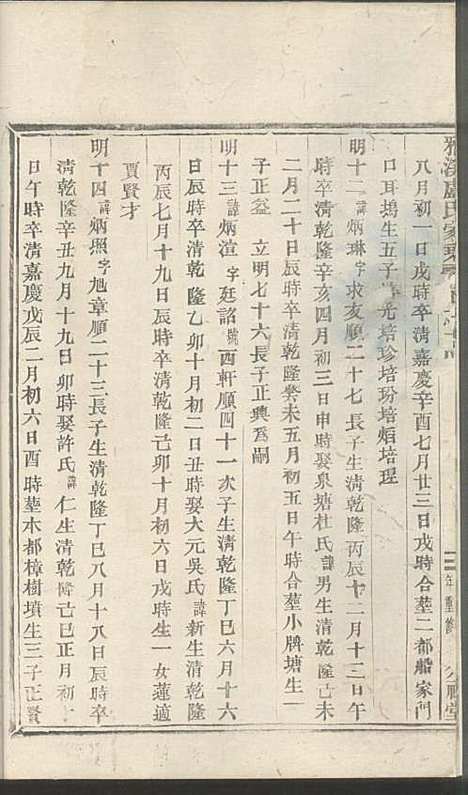 雅溪盧氏家乘
八月初一日戌時卒清嘉慶辛酉七月廿三日戌時合塟二都船家門
口耳塢生五子培光培珍培玢培焆培瑆
明十二諱炳琳字求友順二十七長子生清乾隆丙辰十二月十三日午
時卒清乾隆辛亥四月初三日申時娶泉塘杜氏諱男生清乾隆己未
二月二十日辰時卒清乾隆癸未五月初五日午時合塟小牌塘生一
子正盆 立明七十六長子正興為嗣
明十三諱炳渲字廷詻號西軒順四十一次子生清乾隆丁巳六月十六
日辰時卒清乾隆乙卯十月初二日丑時娶大元吳氏諱新生清乾隆
丙辰七月十九日辰時卒清乾隆己卯十月初六日戌時生一女蓮適
賈賢才
明十四諱炳照字旭章順二十三長子生清乾隆丁巳八月十八日辰時卒
清乾隆辛丑九月十九日卯時娶許氏諱仁生清乾隆己巳正月初一
日午時卒清嘉慶戊辰二月初六日酉時塟木都樟樹墳生三子正賢